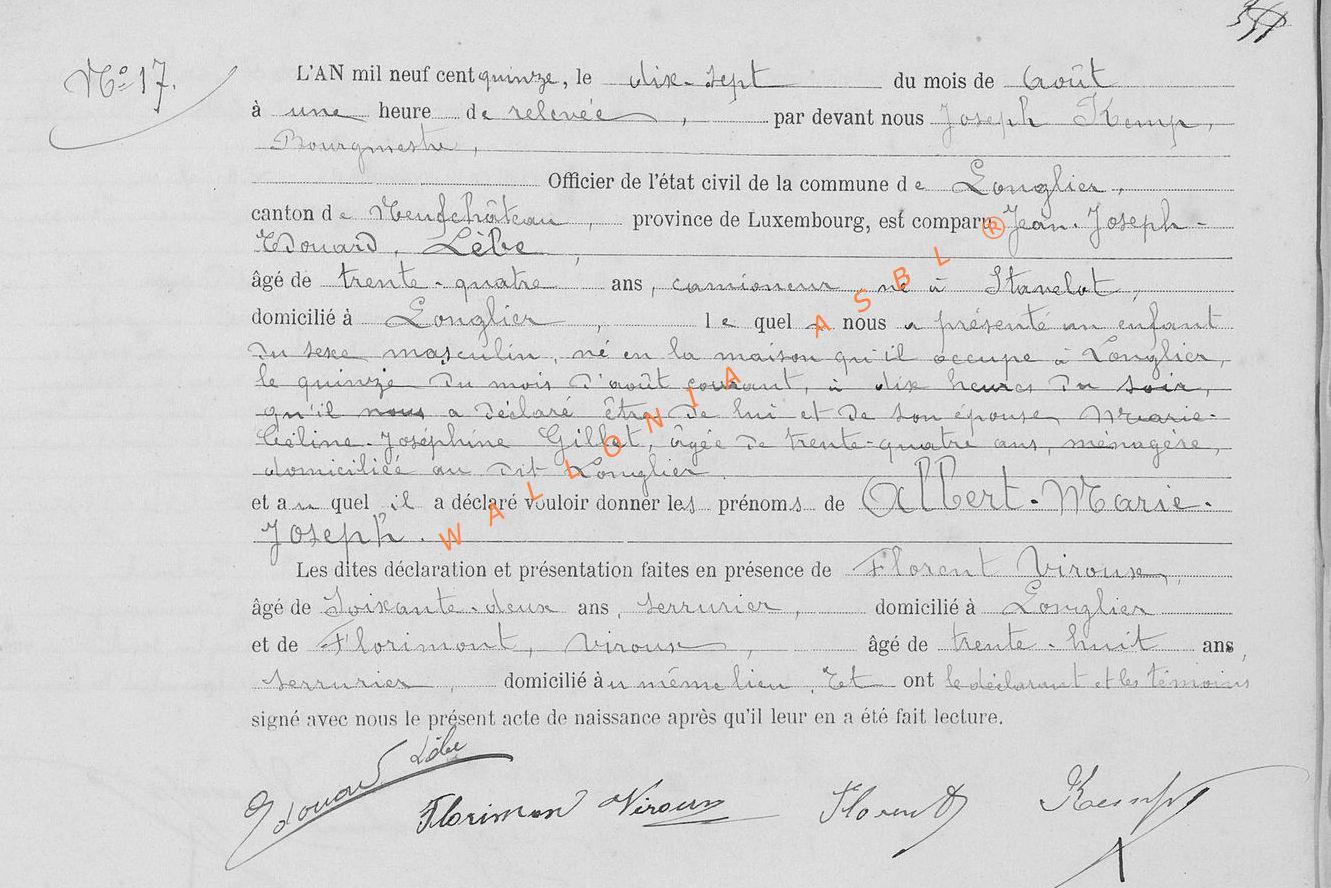 Nº 17.
L'AN mil neuf cent quinze, le dix-sept du mois de Août
à une heure de relevée, par devant nous Joseph Kemp,
Bourgmestre,
Officier de l'état civil de la commune de Longlier,
canton de Neufchâteau, province de Luxembourg, est comparu Jean-Joseph-
Edouard, Lèbe,
âgé de trente-quatre ans, camioneur né à Stavelot,
domicilié à Longlier, le quel nous a présenté un enfant
du sexe masculin, né en la maison qu'il occupe à Longlier,
le quinze du mois d'août courant, à dix heures du soir,
qu'il nous a déclaré être de lui et de son épouse, Marie-
Céline-Joséphine Gillet, âgée de trente-quatre ans, ménagère,
domiciliée au dit Longlier
et au quel il a déclaré vouloir donner les prénoms de Albert-Marie-
Joseph.
Les dites déclaration et présentation faites en présence de Florent Viroux,
âgé de Soixante-deux ans, serrurier, domicilié à Longlier
et de Florimont, Viroux, âgé de trente-huit ans,
serrurier, domicilié au même lieu. Et ont le déclarant et les témoins
signé avec nous le présent acte de naissance après qu'il leur en a été fait lecture.
Edouard Lèbe
Florimon Viroux Florent Kemp
WALLONIA ASBL ®